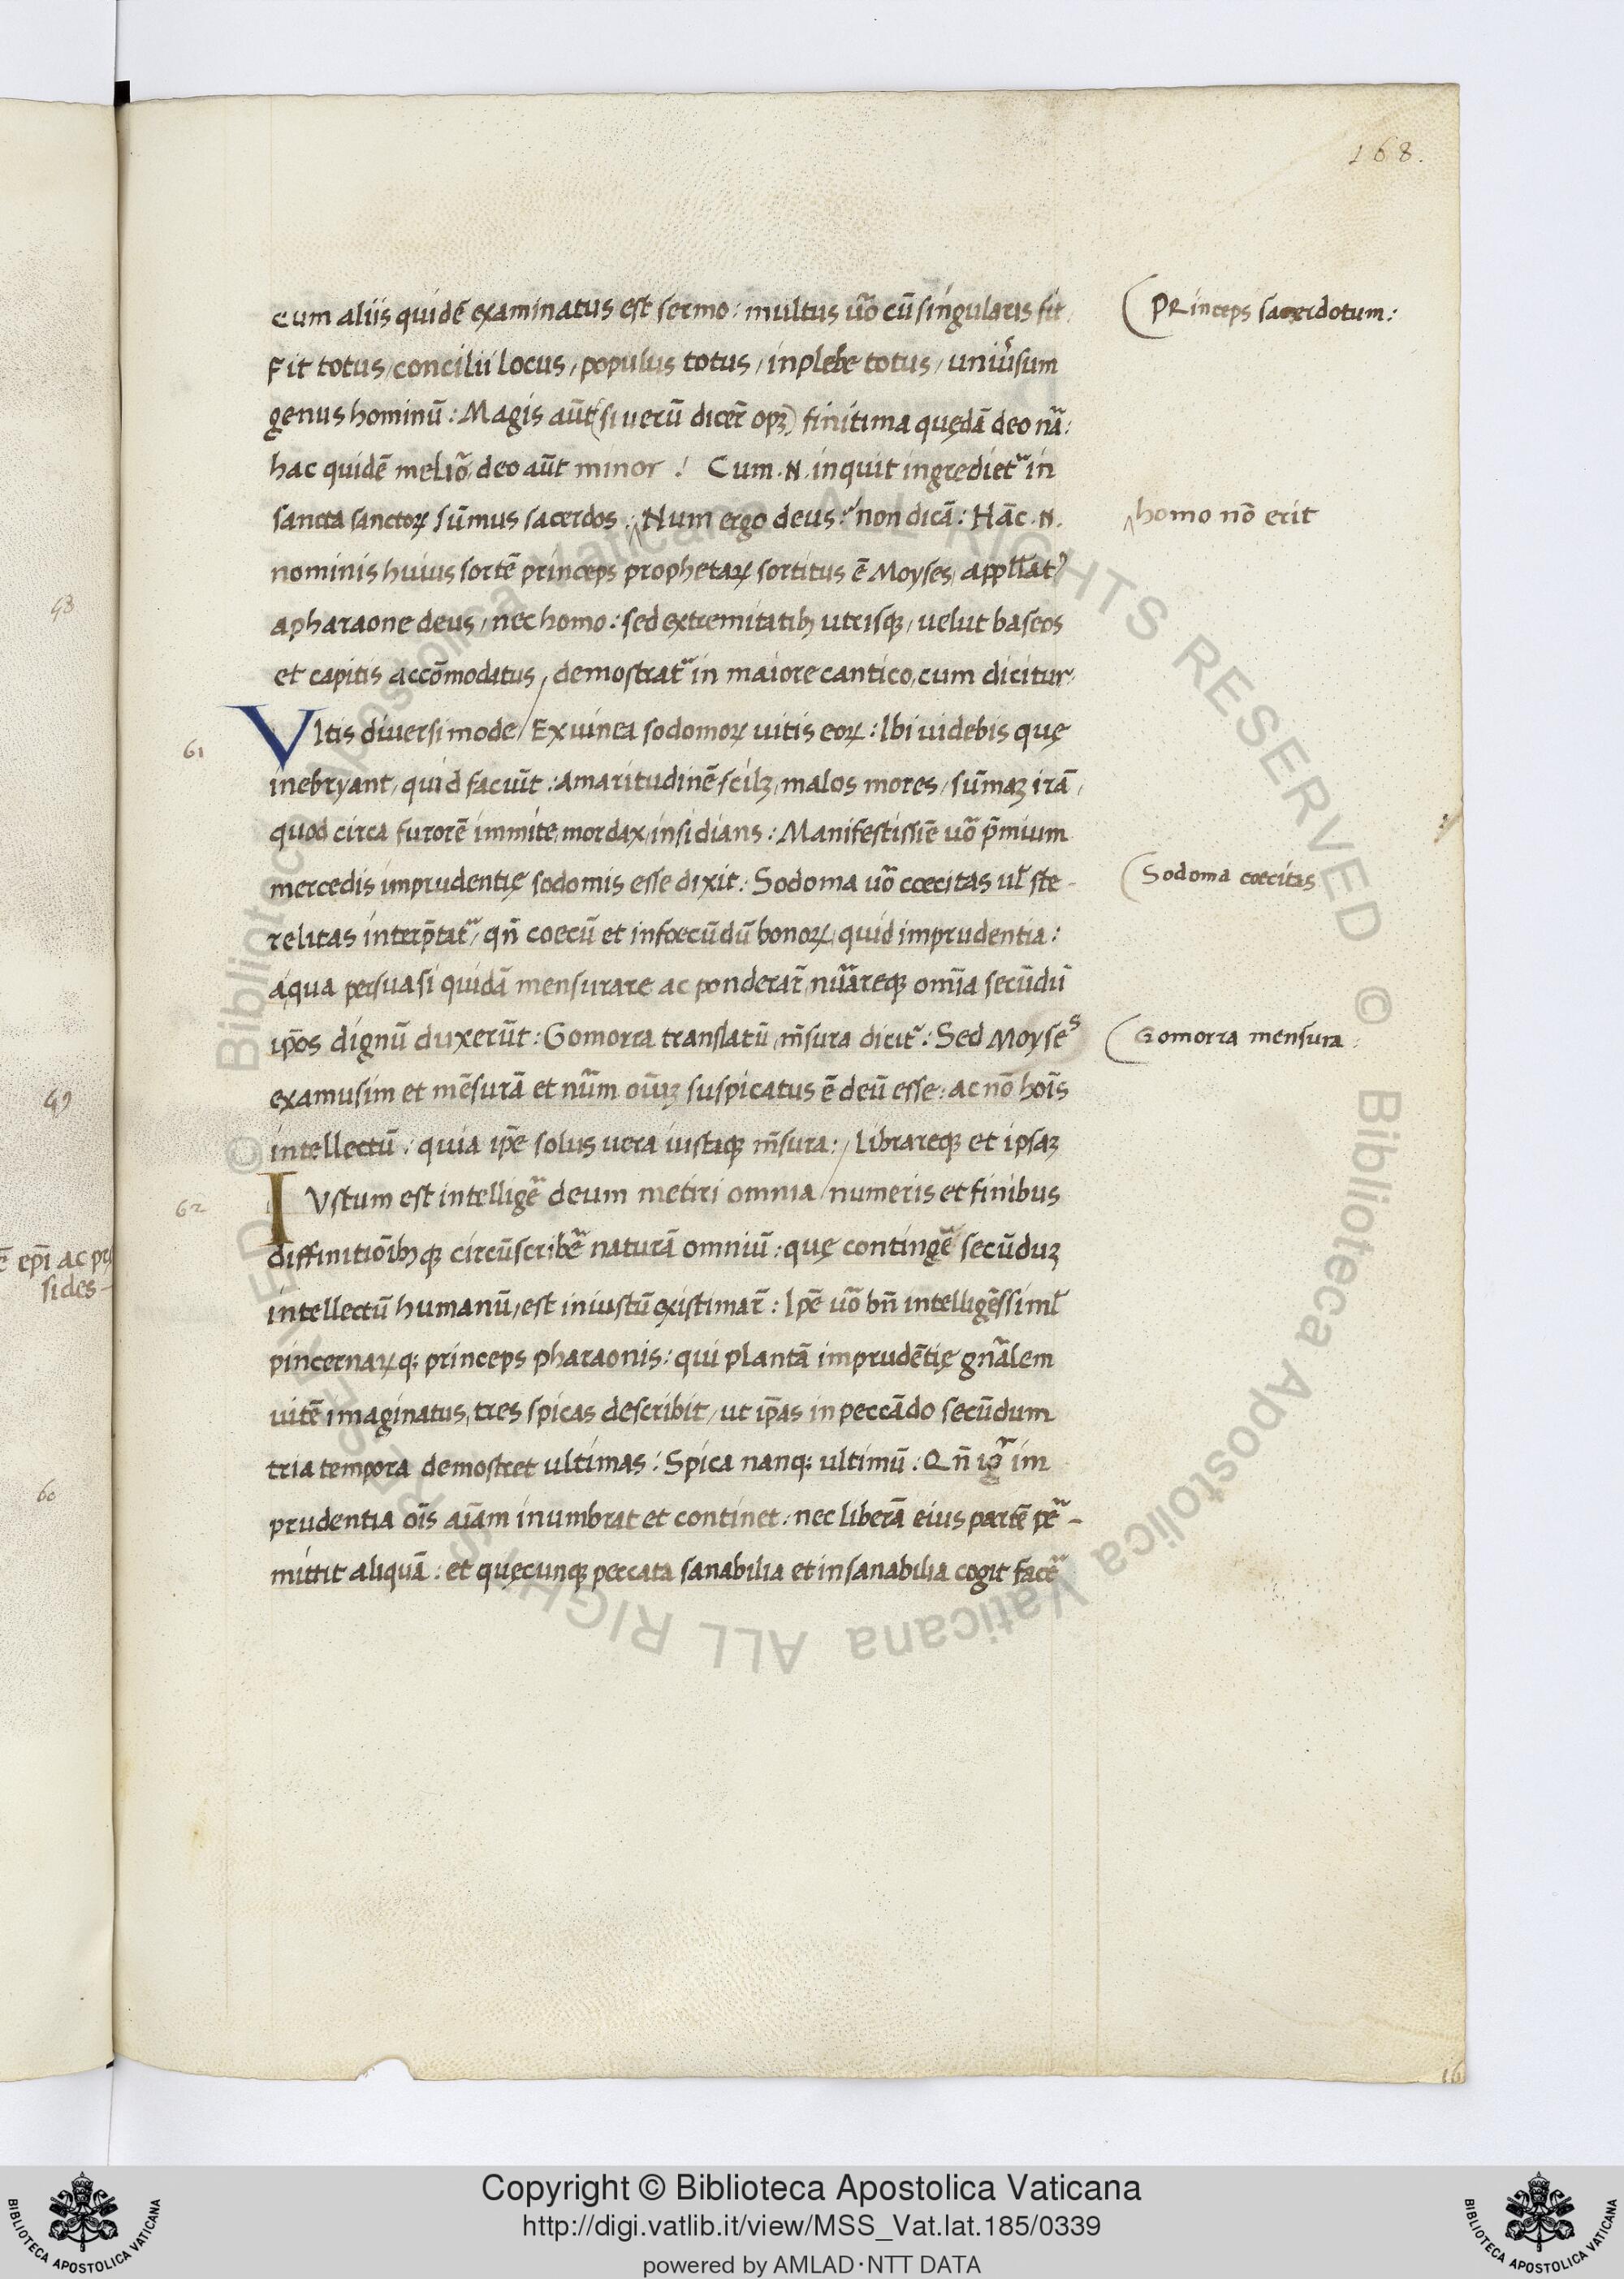 168.
cum aliis quidē examinatus est sermo: multus uo᷃ cū singularis sit.
Fit totus, concilii locus, populus totus, in plebe totus, uniuʳsum
genus hominū: Magis aūt (si uerū dicer̄ opꝫ) finitima quędā deo na᷃:
hac quidē melio᷃, deo aūt minor! Cum .N. inquit ingrediet᷃ in
sancta sanctoꝝ sūmus sacerdos: Num ergo deus: non dicā: Hāc .N.
nominis huius sortē princeps prophetaꝝ sortitus ē Moyses, appłłatꝰ
a pharaone deus, nec homo: sed extremitatibꝫ utrisqꝫ, uelut baseos
et capitis accōmodatus, demostrat᷃ in maiore cantico, cum dicitur.
Vltis diuersi mode / Ex uinea sodomoꝝ uitis eoꝝ: Ibi uidebis quę
inebryant, quid faciūt: Amaritudinē scilꝫ, malos mores, sūmaꝫ irā,
quod circa furorē immite, mordax, insidians: Manifestissīe uo᷃ p̄mium
mercedis imprudentię sodomis esse dixit: Sodoma uo᷃ coecitas ul᷃ ste-
relitas interp̄tat᷃, qn̄ coecū et infoecūdū bonoꝝ, quid imprudentia:
a qua persuasi quidā mensurare ac ponderar̄, nu᷃areqꝫ omīa secūdū
ip̄os dignū duxerūt: Gomorra translatū, m̄sura dicit᷃: Sed Moyses
examusim et mēsurā et nu᷃m oīuꝫ suspicatus ē deū esse: ac nō hoīs
intellectū: quia ip̄e solus uera iustaqꝫ m̄sura: / librareqꝫ et ipsaꝫ
IVstum est intellige᷃ deum metiri omnia / numeris et finibus
diffinitiōibꝫqꝫ circūscribe᷃ naturā omniū: quę continge᷃ secūduꝫ
intellectū humanū, est iniustū existimar̄: Ip̄e uo᷃ bn̄ intelligēs simł
pincernaꝝq; princeps pharaonis: qui plantā imprudētię gn᷃alem
uitē imaginatus, tres spicas describit, ut ip̄as in peccādo secūdum
tria tempora demostret ultimas: Spica nanq; ultimū: Qn̄ ig᷃ im
prudentia oīs aīam inumbrat et continet: nec liberā eius partē p̱e᷃-
mittit aliquā: et quęcunqꝫ peccata sanabilia et insanabilia cogit face᷃
PRinceps sacerdotum:
homo nō erit
Sodoma coecitas
Gomorra mensura:
61
62
49
ep̄i ac pr
sides-
60
16
© Biblioteca Apostolica Vaticana ALL RIGHTS RESERVED
© Biblioteca Apostolica Vaticana ALL RIGHTS RESERVED
BIBLIOTECA APOSTOLICA VATICANA
Copyright © Biblioteca Apostolica Vaticana
http://digi.vatlib.it/view/MSS_Vat.lat.185/0339
powered by AMLAD·NTT DATA
BIBLIOTECA APOSTOLICA VATICANA